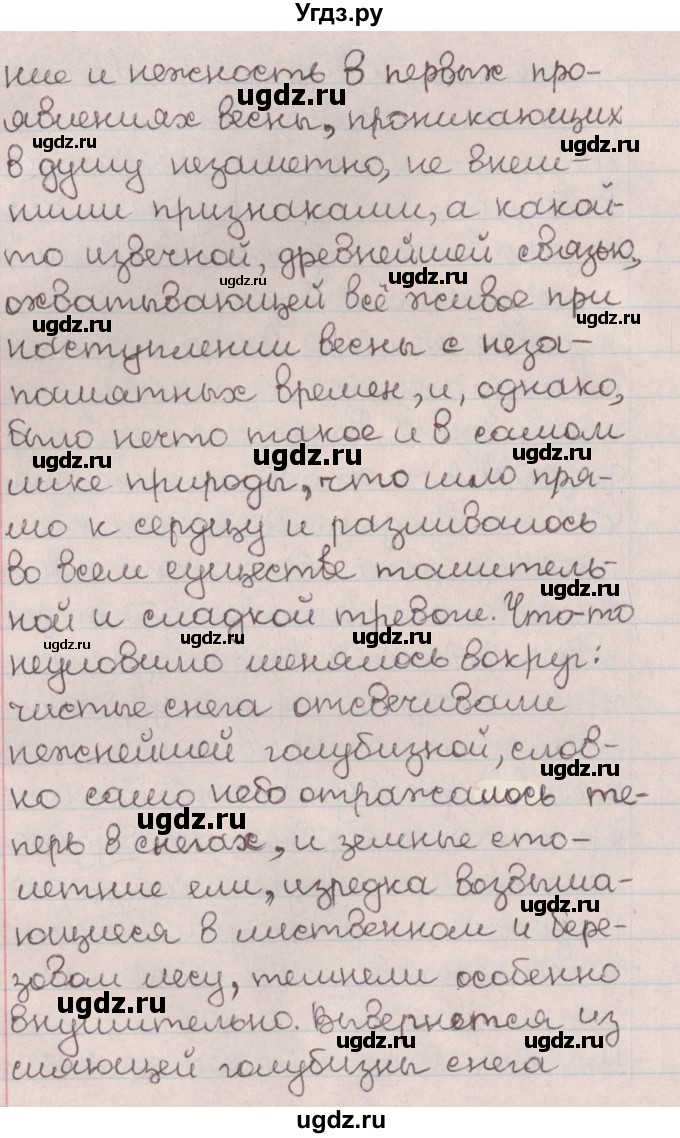 Угдз.ру
ние и нежность в первых про-
явлениях весны, проникающих
в душу незаметно, не внеш-
ними признаками, а какой-
то извечной, древнейшей связью,
охватывающей всё живое при
наступлении весны с неза-
памятных времен, и, однако,
было нечто такое и в самом
лике природы, что шло пря-
мо к сердцу и разливалось
во всем существе томитель-
ной и сладкой тревоге. Что-то
неуловимо менялось вокруг:
чистые снега отсвечивали
нежнейшей голубизной, слов-
но само небо отражалось те-
перь в снегах, и земные сто-
летние ели, изредка возвыша-
ющиеся в лиственном и бере-
зовом лесу, темнели особенно
внушительно. Вывернется из
сияющей голубизны снега
ugdz.ru